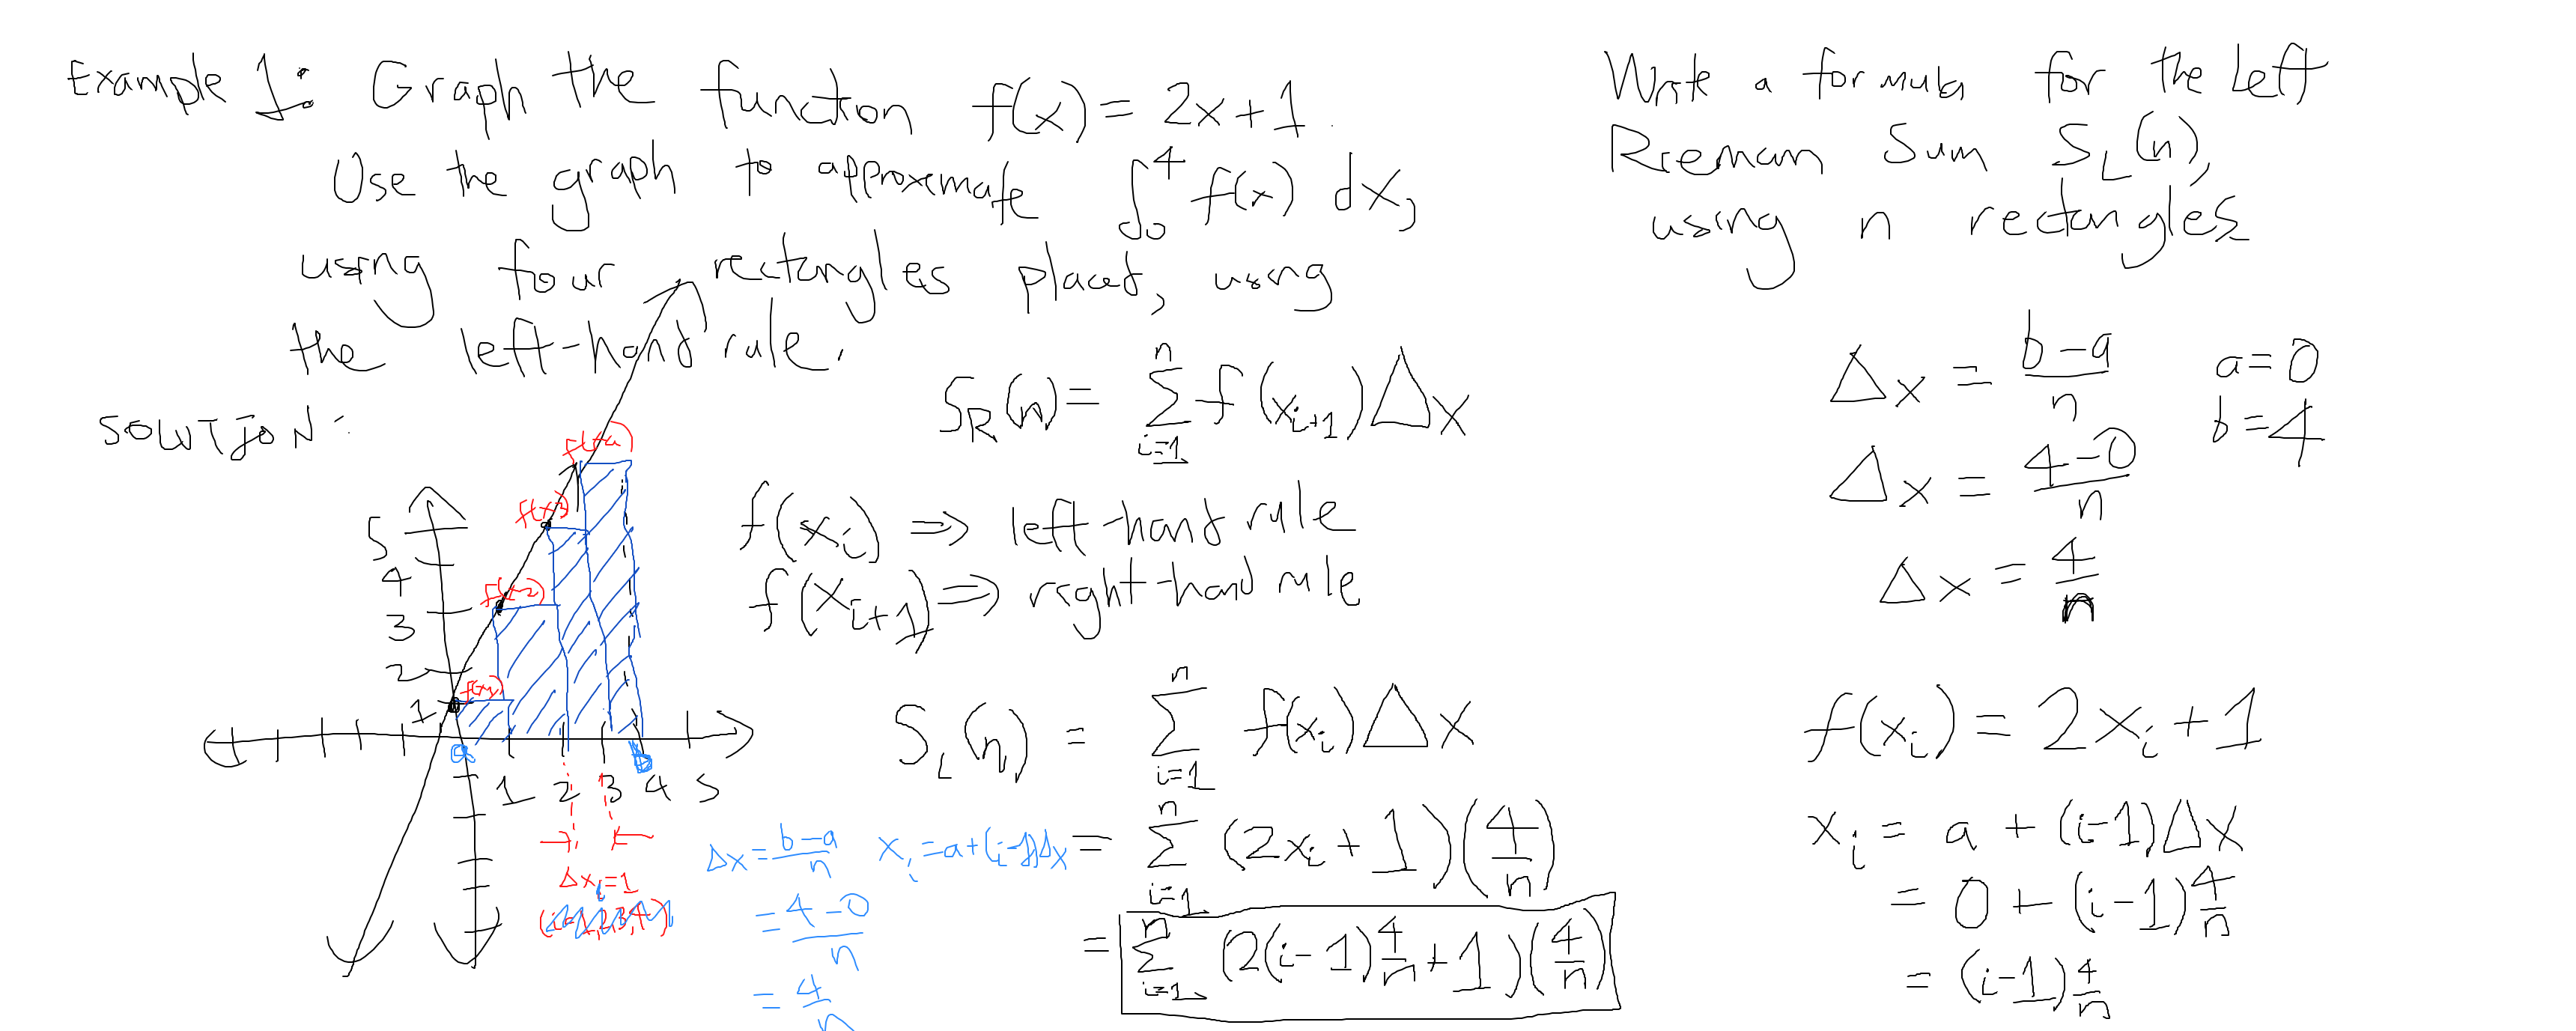 Example 1: Graph the function f(x) = 2x+1.
Use the graph to approximate ∫₀⁴ f(x) dx,
using four rectangles placed, using
the left-hand rule.
SOLUTION:
5
4
3
2
1
f(x₁)
f(x₂)
f(x₃)
f(x₄)
a
b
1 2 3 4 5
Δxᵢ=1
(i=1,2,3,4)
Δx = (b-a)/n
= (4-0)/n
= 4/n
xᵢ = a+(i-1)Δx
S_R(n) = Σ_{i=1}^{n} f(x_{i+1})Δx
f(xᵢ) ⇒ left-hand rule
f(x_{i+1}) ⇒ right-hand rule
S_L(n) = Σ_{i=1}^{n} f(xᵢ)Δx
= Σ_{i=1}^{n} (2xᵢ+1)(4/n)
= Σ_{i=1}^{n} (2(i-1)4/n+1)(4/n)
Write a formula for the Left
Rieman Sum S_L(n),
using n rectangles
Δx = (b-a)/n
a=0
b=4
Δx = (4-0)/n
Δx = 4/n
f(xᵢ) = 2xᵢ+1
xᵢ = a + (i-1)Δx
= 0 + (i-1)4/n
= (i-1)4/n